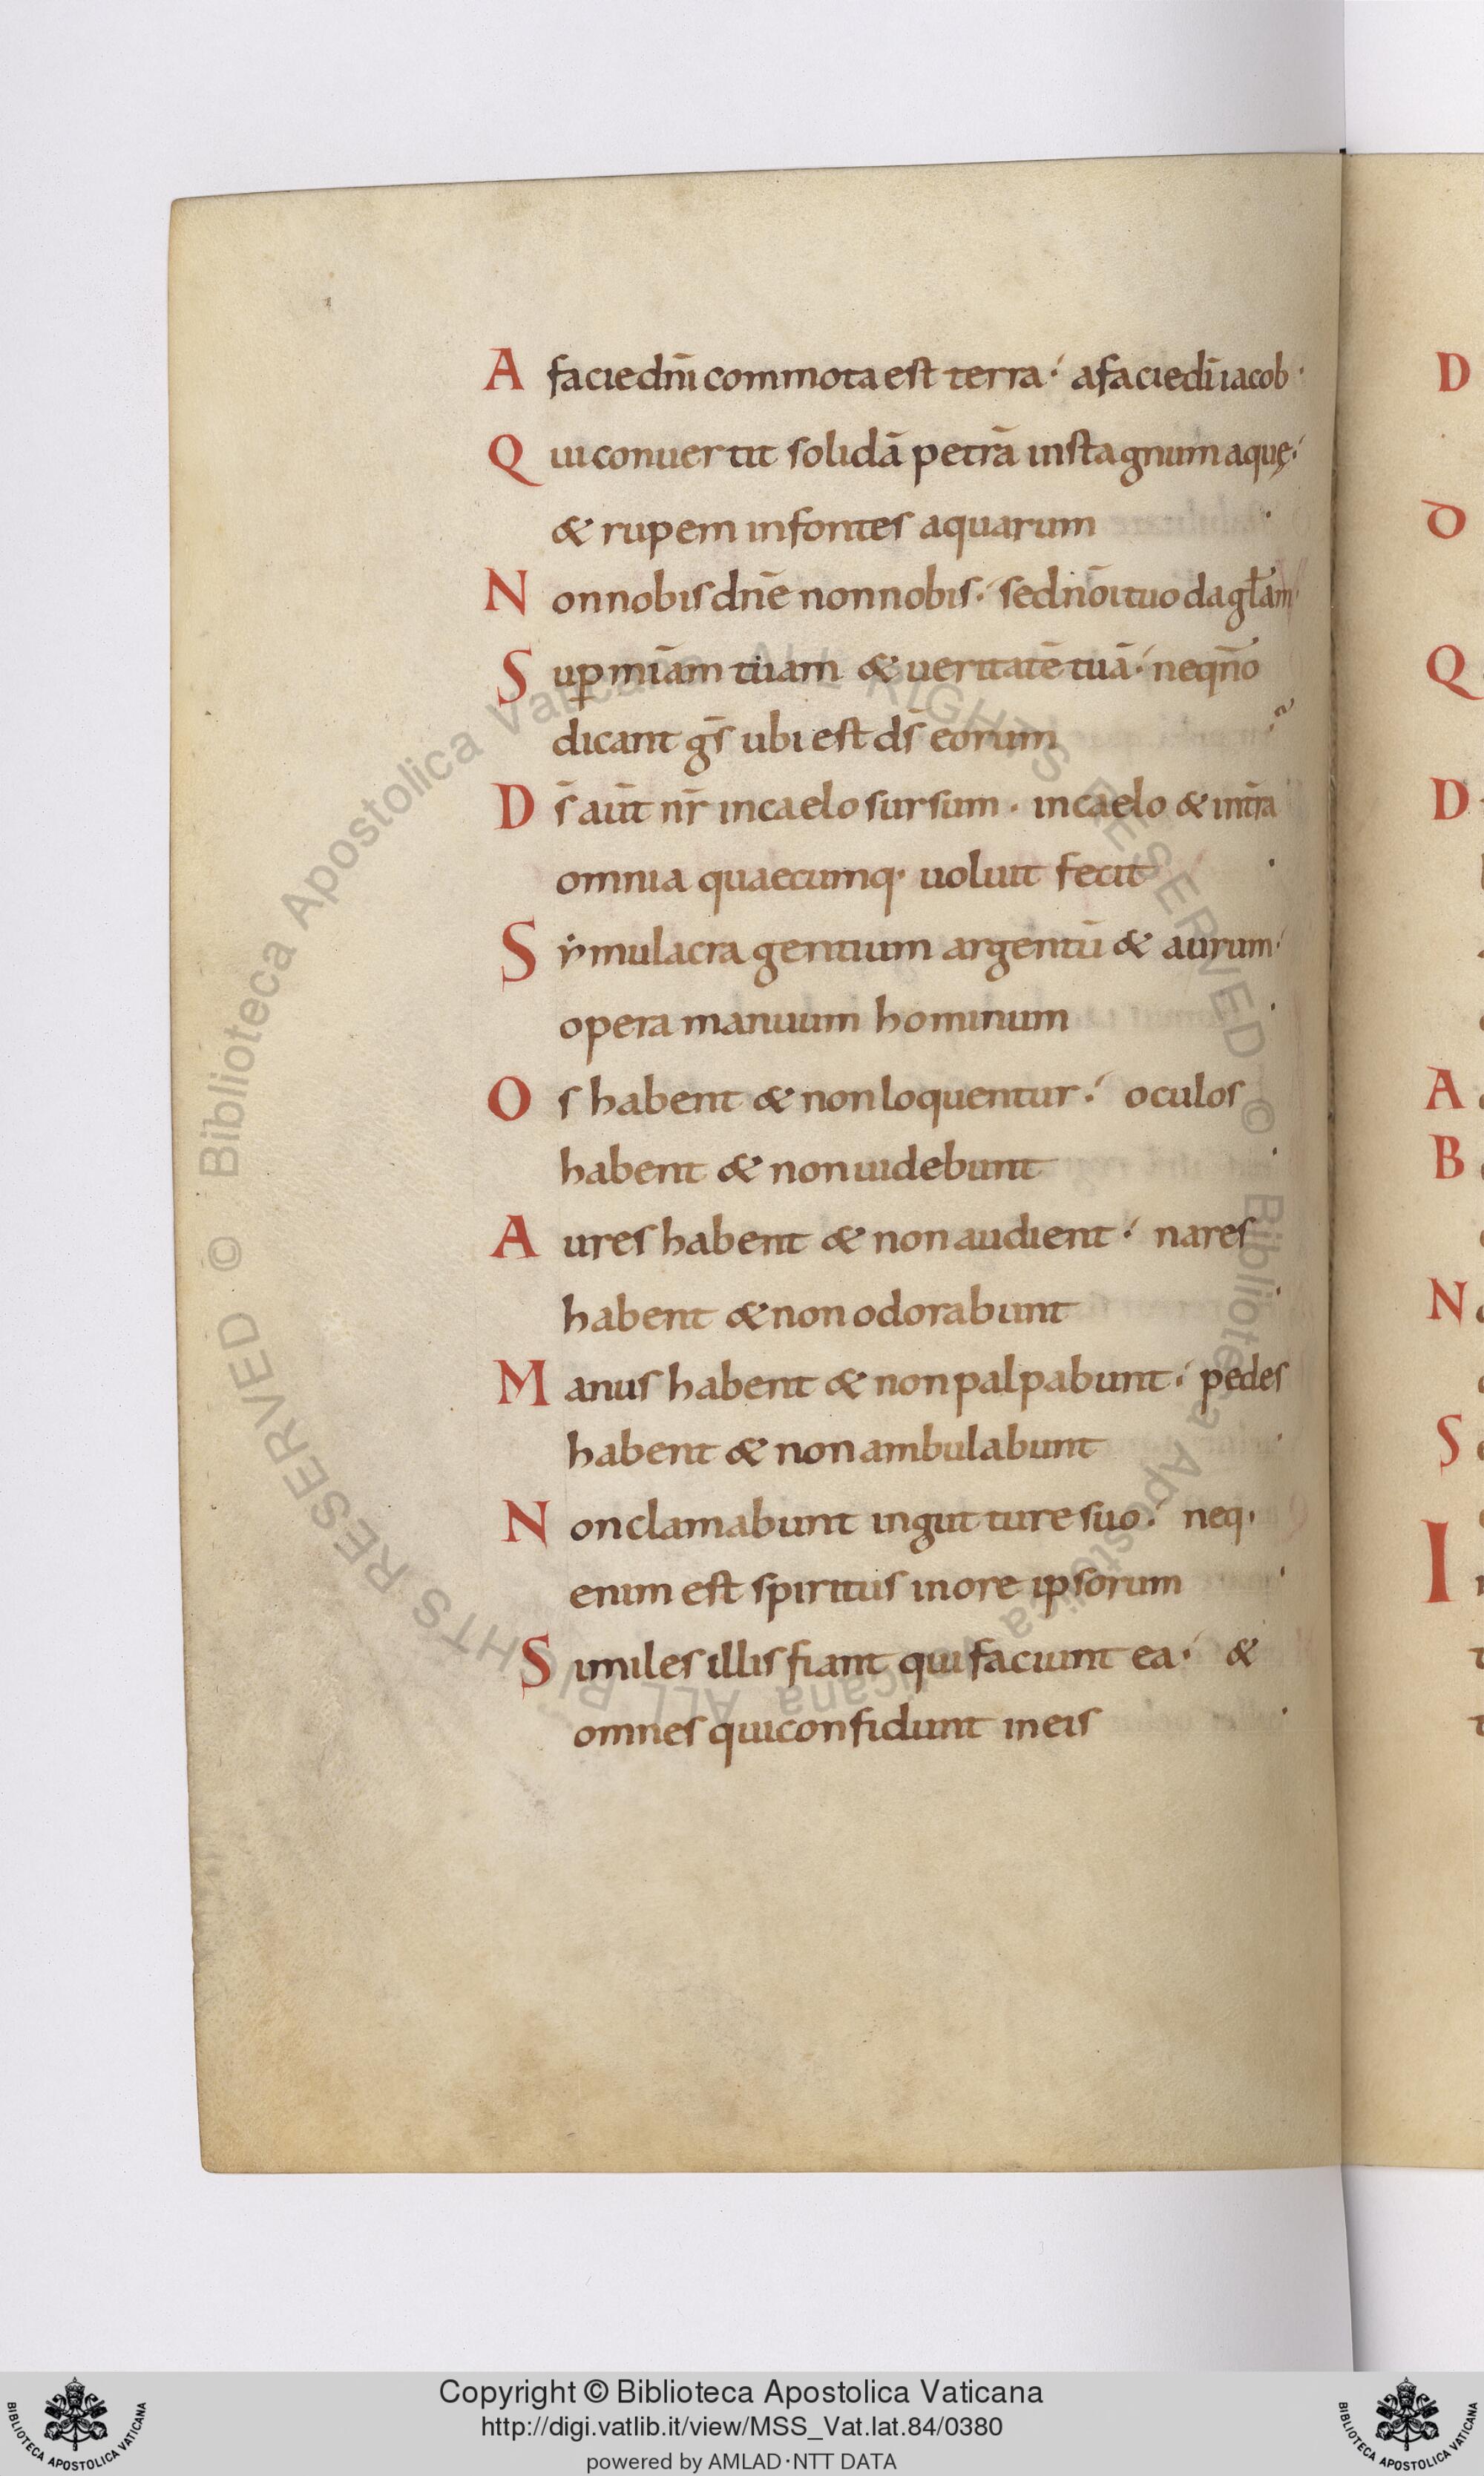 A faciedn̄i commota est terra· afaciedi̅ iacob·
Q ui conuertit solidā petrā instagnum aquę·
& rupem infontes aquarum ·
N on nobis dn̄e non nobis· sed nōi tuo da gl̄am
S uꝑ mīam tuam & ueritatē tuā· neqn̄o
dicant gs̄ ubi est ds̄ eorum
D s̄ aūt nr̄ in caelo sursum · in caelo & intr̄a
omnia quaecumq· uoluit fecit ·
S ẏmulacra gentium argentū & aurum·
opera manuum hominum ·
O s habent & non loquentur· oculos
habent & non uidebunt ·
A ures habent & non audient· nares
habent & non odorabunt ·
M anus habent & non palpabunt· pedes
habent & non ambulabunt ·
N on clamabunt in gutture suo· neq·
enim est spiritus in ore ipsorum ·
S imiles illis fiant qui faciunt ea· &
omnes qui confidunt in eis ·
D
D
Q
D
A
B
N
S
I
© Biblioteca Apostolica Vaticana ALL RIGHTS RESERVED © Biblioteca Apostolica Vaticana ALL RIGHTS RESERVED
Copyright © Biblioteca Apostolica Vaticana
http://digi.vatlib.it/view/MSS_Vat.lat.84/0380
powered by AMLAD·NTT DATA
BIBLIOTECA APOSTOLICA VATICANA
BIBLIOTECA APOSTOLICA VATICANA